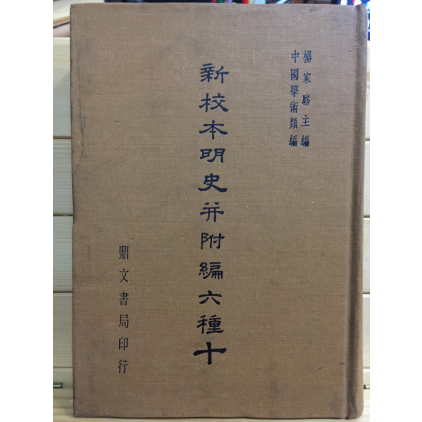 楊家駱主編
中國學術類編
新校本明史并附編六種十
鼎文書局印行